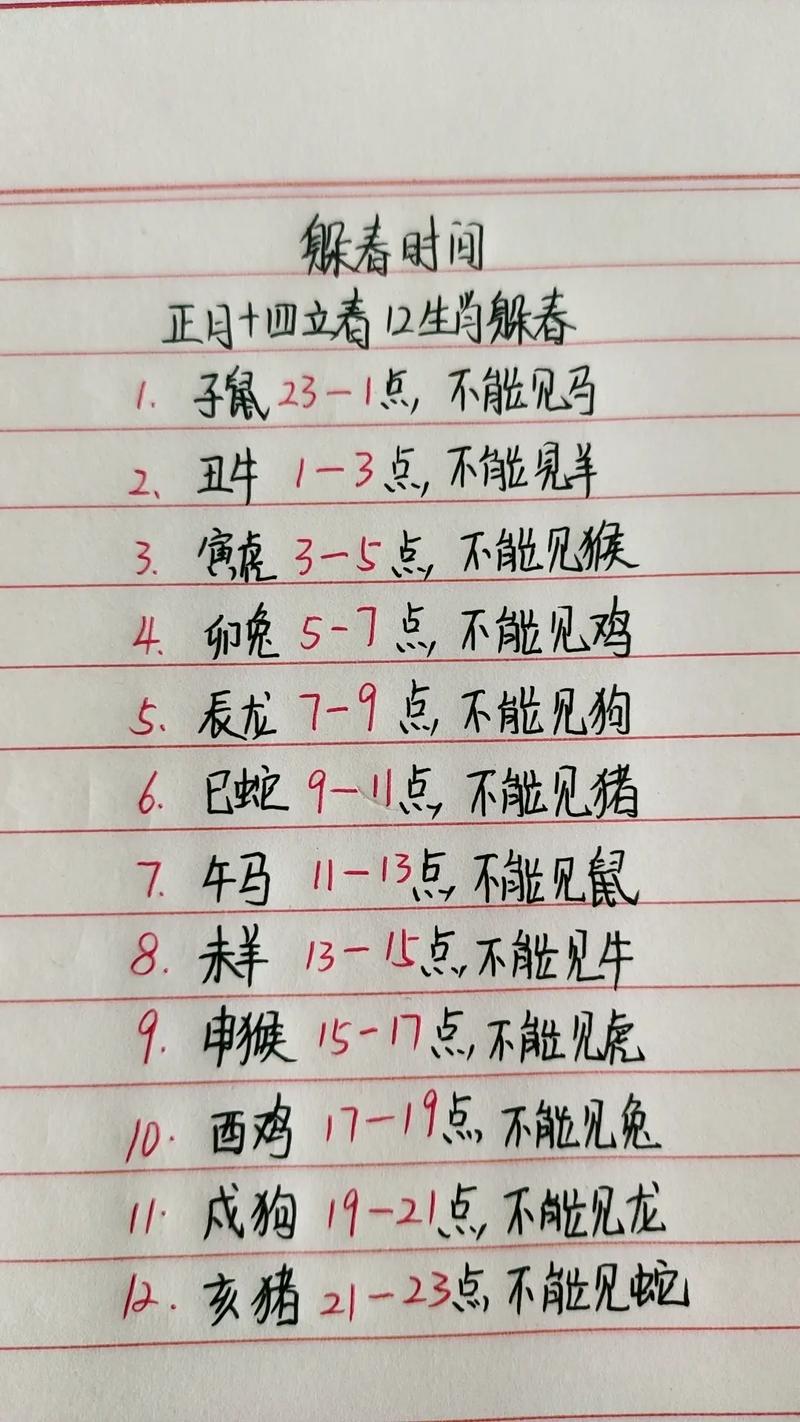 躲春时间
正月十四立春12生肖躲春
1. 子鼠 23-1点, 不能见马
2、丑牛 1-3点, 不能见羊
3. 寅虎 3-5点, 不能见猴
4. 卯兔 5-7点, 不能见鸡
5. 辰龙 7-9点, 不能见狗
6. 巳蛇 9-11点, 不能见猪
7. 午马 11-13点, 不能见鼠
8. 未羊 13-15点, 不能见牛
9. 申猴 15-17点, 不能见虎
10. 酉鸡 17-19点, 不能见兔
11. 戌狗 19-21点, 不能见龙
12. 亥猪 21-23点, 不能见蛇